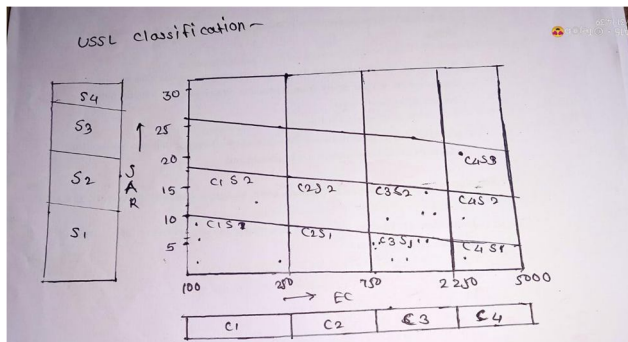 USSL Classification -
S4
S3
S2
S1
SAR
30
25
20
15
10
5
C4S3
C1S2
C2S2
C3S2
C4S2
C1S1
C2S1
C3S1
C4S1
100
250
750
2250
5000
EC
C1
C2
C3
C4